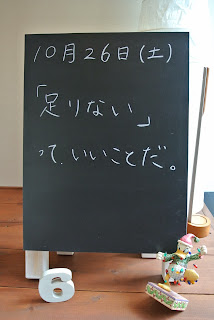 10月26日(土)
「足りない」
って、いいことだ。
6